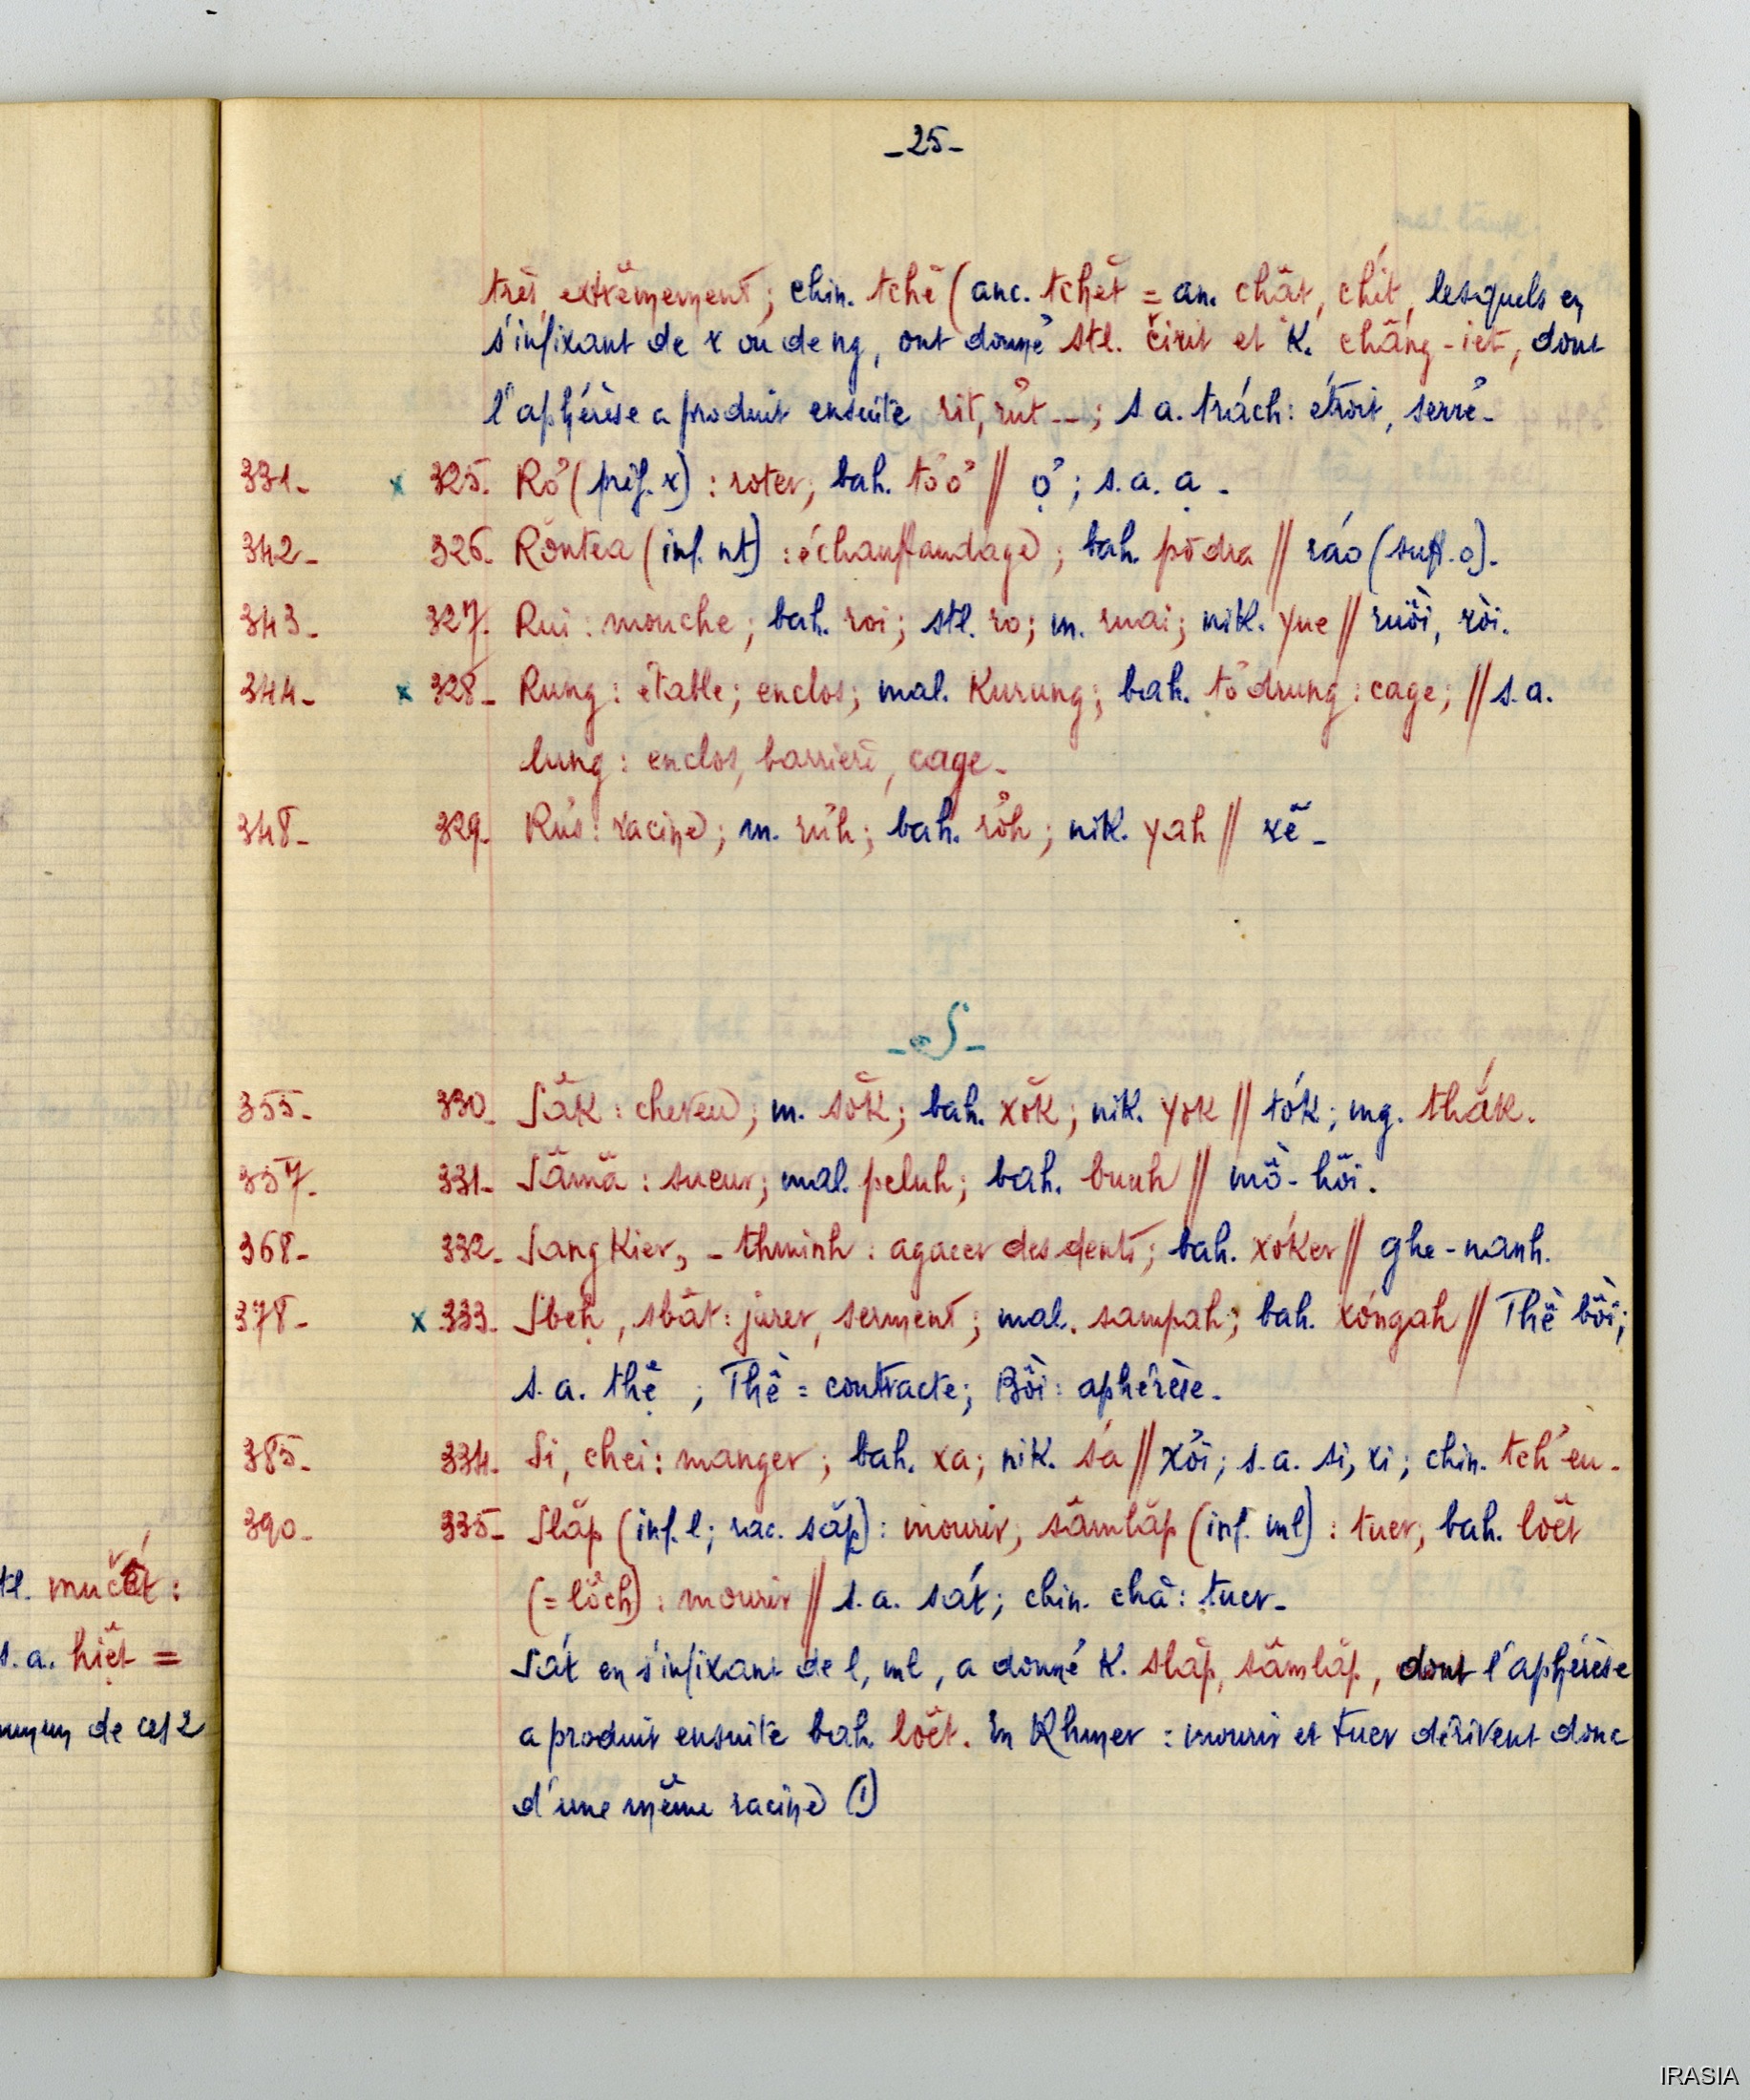 -25-
très, extrêmement; chin. tchê (anc. tchêt = an. chât, chít, lesquels en
s'infixant de r ou de ng, ont donné stl. čirit et K. châng-iet, dont
l'aphérèse a produit ensuite rit, rút --; s.a. trách: étroit, serré-
331- x 325. Rơ (préf. r) : roter; bah. tơơ // ọ; s.a. ạ -
342- 326. Rontea (inf. nt) : échauffaudage; bah. pŏdra // ráo (suff. o).
343- 327. Rui : mouche; bah. roi; stl. ro; m. ruai; nik. yue // ruồi, ròi.
344- x 328- Rung : étable; enclos; mal. Kurung; bah. tơdrung : cage; // s.a.
lung : enclos, barrière, cage-
348- 329- Rưs : racine; m. rưh; bah. rơh; nik. yah // rễ -
-S-
355- 330- Săk : cheveu; m. sŏk; bah. xŏk; nik. yok // tók; mg. thák.
357- 331- Sâmâ : sueur; mal. peluh; bah. buuh // mồ-hôi.
368- 332- Sangkier, -thminh : agacer des dents; bah. xóker // ghe-nanh.
378- x 333- Sbeh, sbât : jurer, serment; mal. sampah; bah. xơngah // Thề bồi;
s.a. thệ ; Thề = contracte; Bồi : aphérèse-
385- 334- Si, chei : manger; bah. xa; nik. sá // xơi; s.a. si, xi; chin. tch'eu-
390- 335- Slăp (inf. l; rac. săp) : mourir; sâmlăp (inf. ml) : tuer; bah. lŏĕt
(= lŏch) : mourir // s.a. sát; chin. chà : tuer-
Sát en s'infixant de l, ml, a donné K. slăp, sâmlăp, dont l'aphérèse
tl. mučĕt :
s.a. hiệt =
de ces 2
a produit ensuite bah. lŏĕt. En Khmer : mourir et tuer dérivent donc
d'une même racine (1)
IRASIA